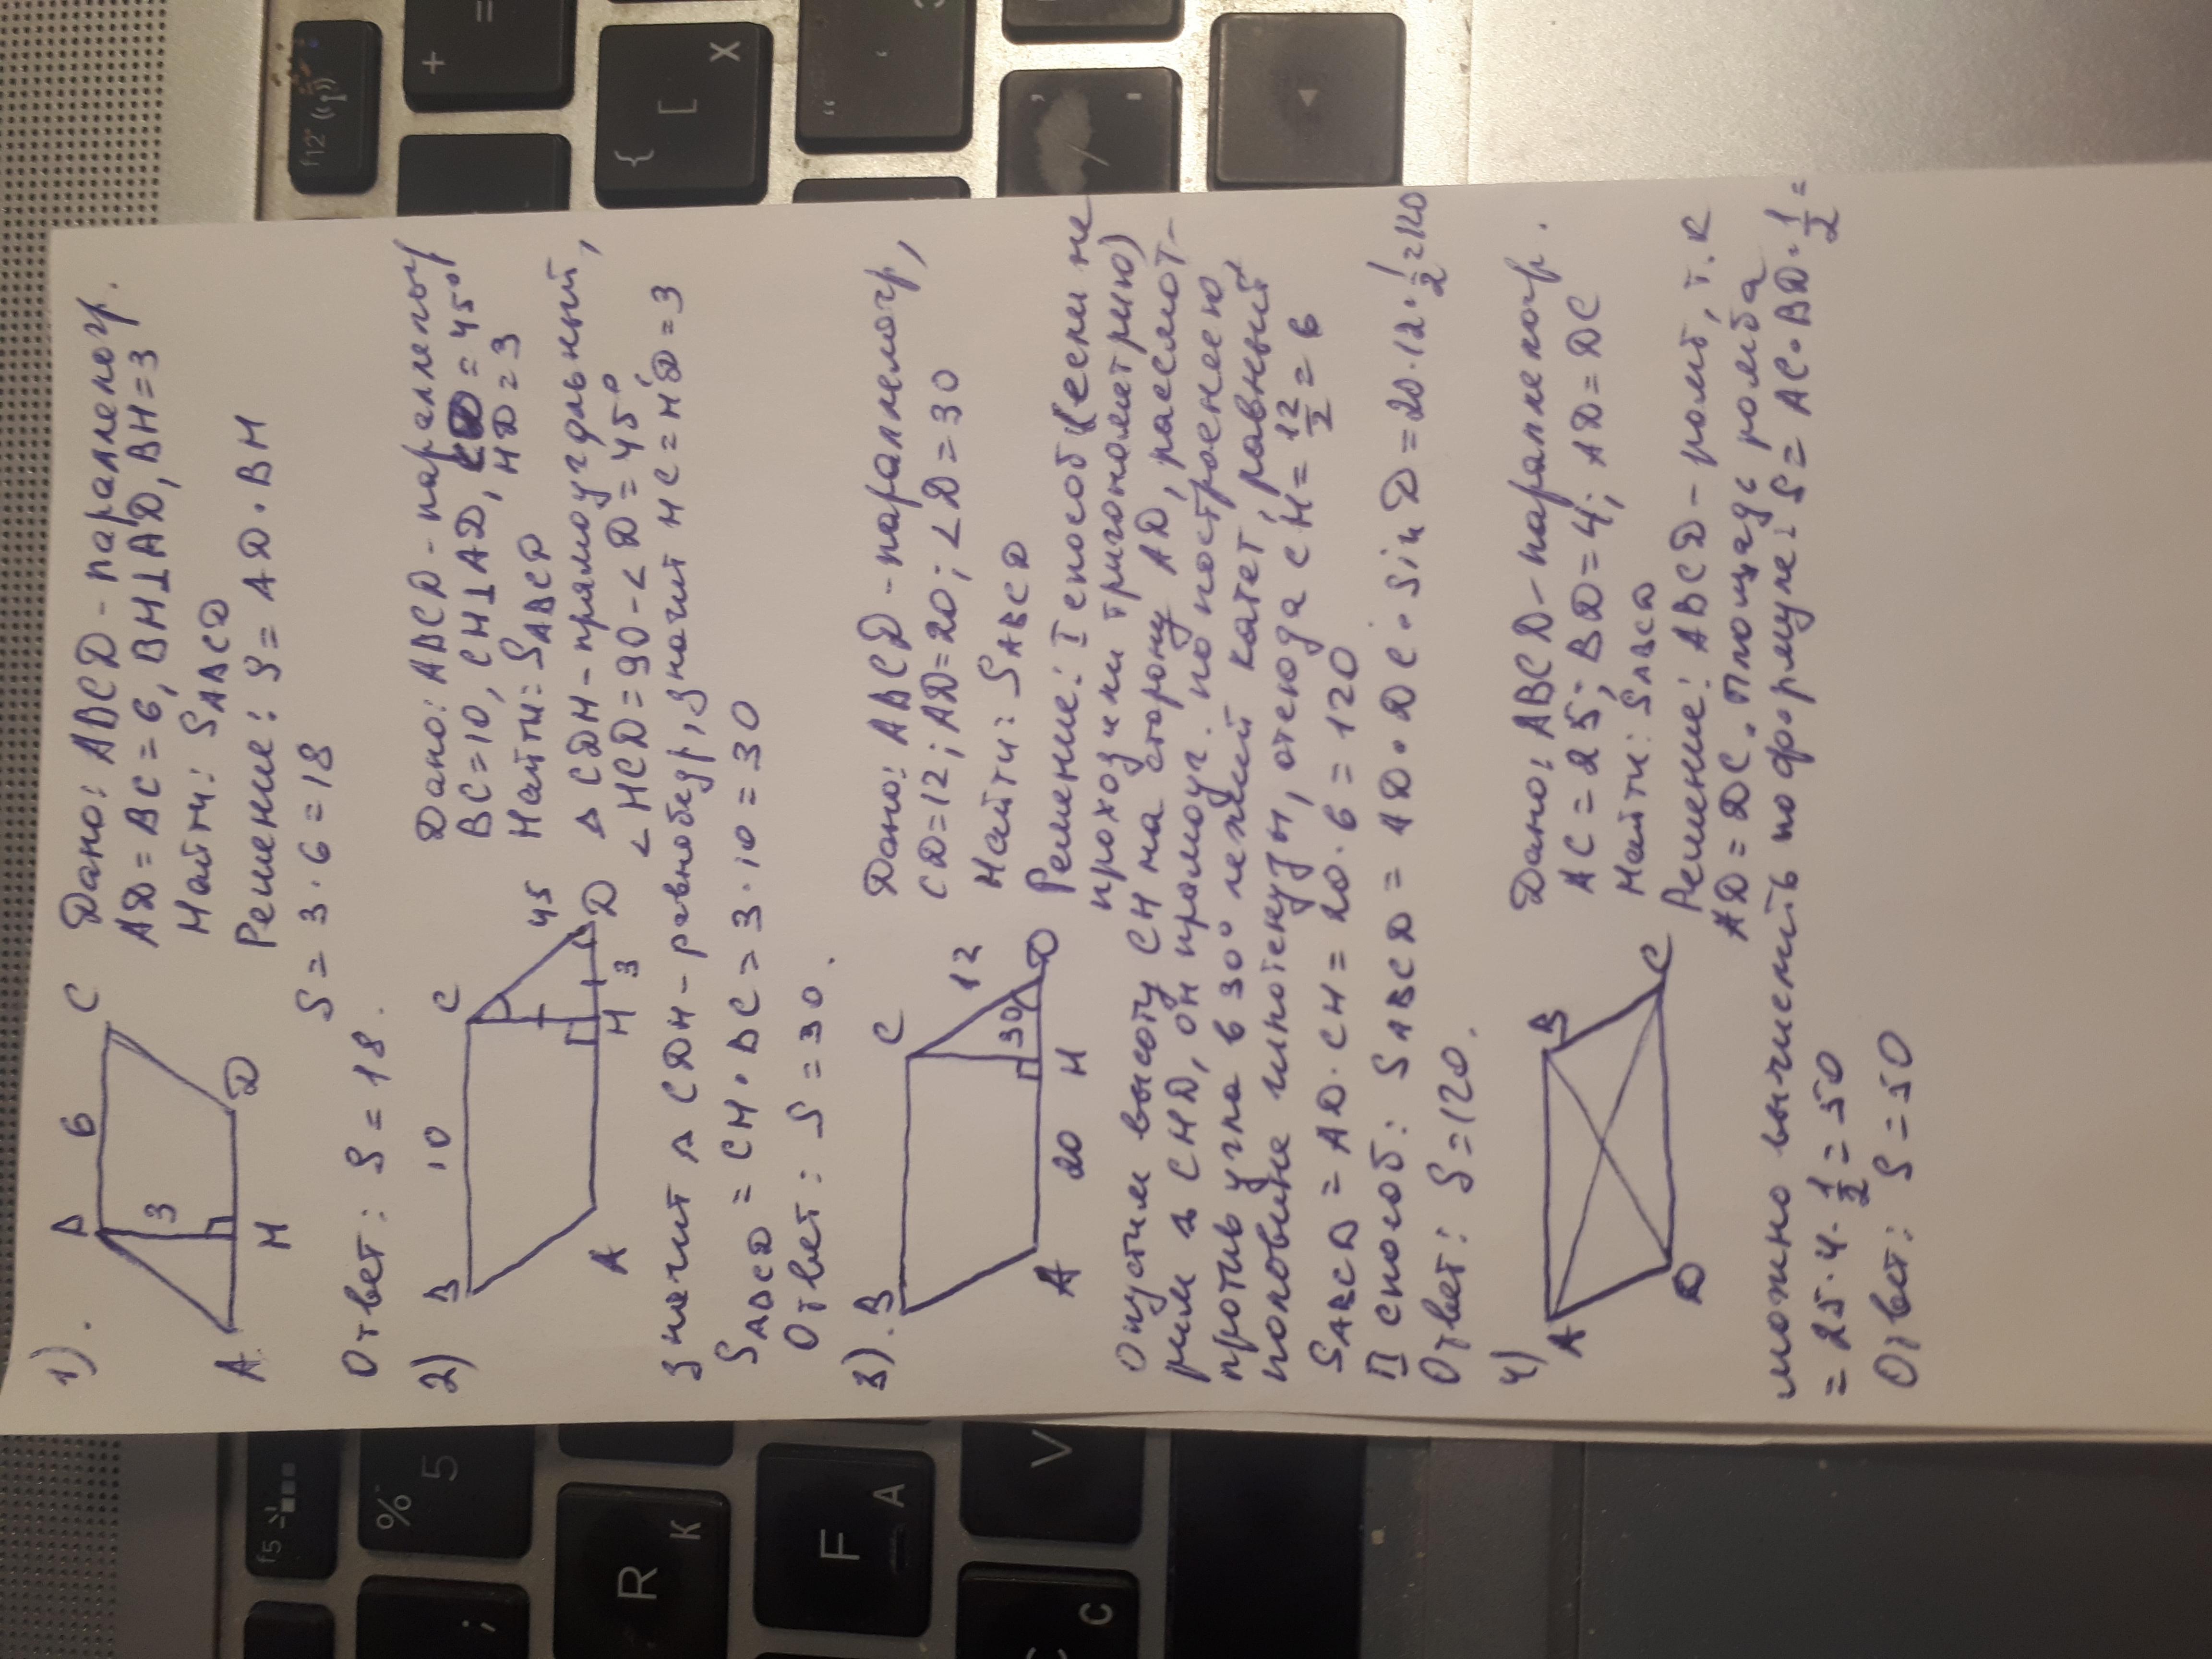 1).
B 6 C
3
A H D
Дано: ABCD - параллелогр.
AD = BC = 6, BH⊥AD, BH = 3
Найти: SABCD
Решение: S = AD · BH
S = 3 · 6 = 18
Ответ: S = 18.
2)
B 10 C
45
A H 3 D
Дано: ABCD - параллелогр
BC = 10, CH⊥AD, ∠D = 45°,
HD = 3
Найти: SABCD
△ CDH - прямоугольный,
∠HCD = 90 - ∠D = 45°
значит △ CDH - равнобедр, значит HC = HD = 3
SABCD = CH · BC = 3 · 10 = 30
Ответ: S = 30.
3).
B C
12
30
A 20 H D
Дано: ABCD - параллелогр,
CD = 12; AD = 20; ∠D = 30
Найти: SABCD
Решение: I способ (если не
проходили тригонометрию)
Опустим высоту CH на сторону AD, рассмот-
рим △ CHD, он прямоуг. по построению,
против угла в 30° лежит катет, равный
половине гипотенузы, отсюда CH = 12/2 = 6
SABCD = AD · CH = 20 · 6 = 120
II способ: SABCD = AD · DC · sin D = 20 · 12 · 1/2 = 120
Ответ: S = 120.
4)
A B
D C
Дано: ABCD - параллелогр.
AC = 25; BD = 4; AD = DC
Найти: SABCD
Решение: ABCD - ромб, т.к
AD = DC. Площадь ромба
можно вычислить по формуле: S = AC · BD · 1/2 =
= 25 · 4 · 1/2 = 50
Ответ: S = 50
f12
+ =
{ [ Х
" '
f5
% 5
;
R К
F А
V
C С